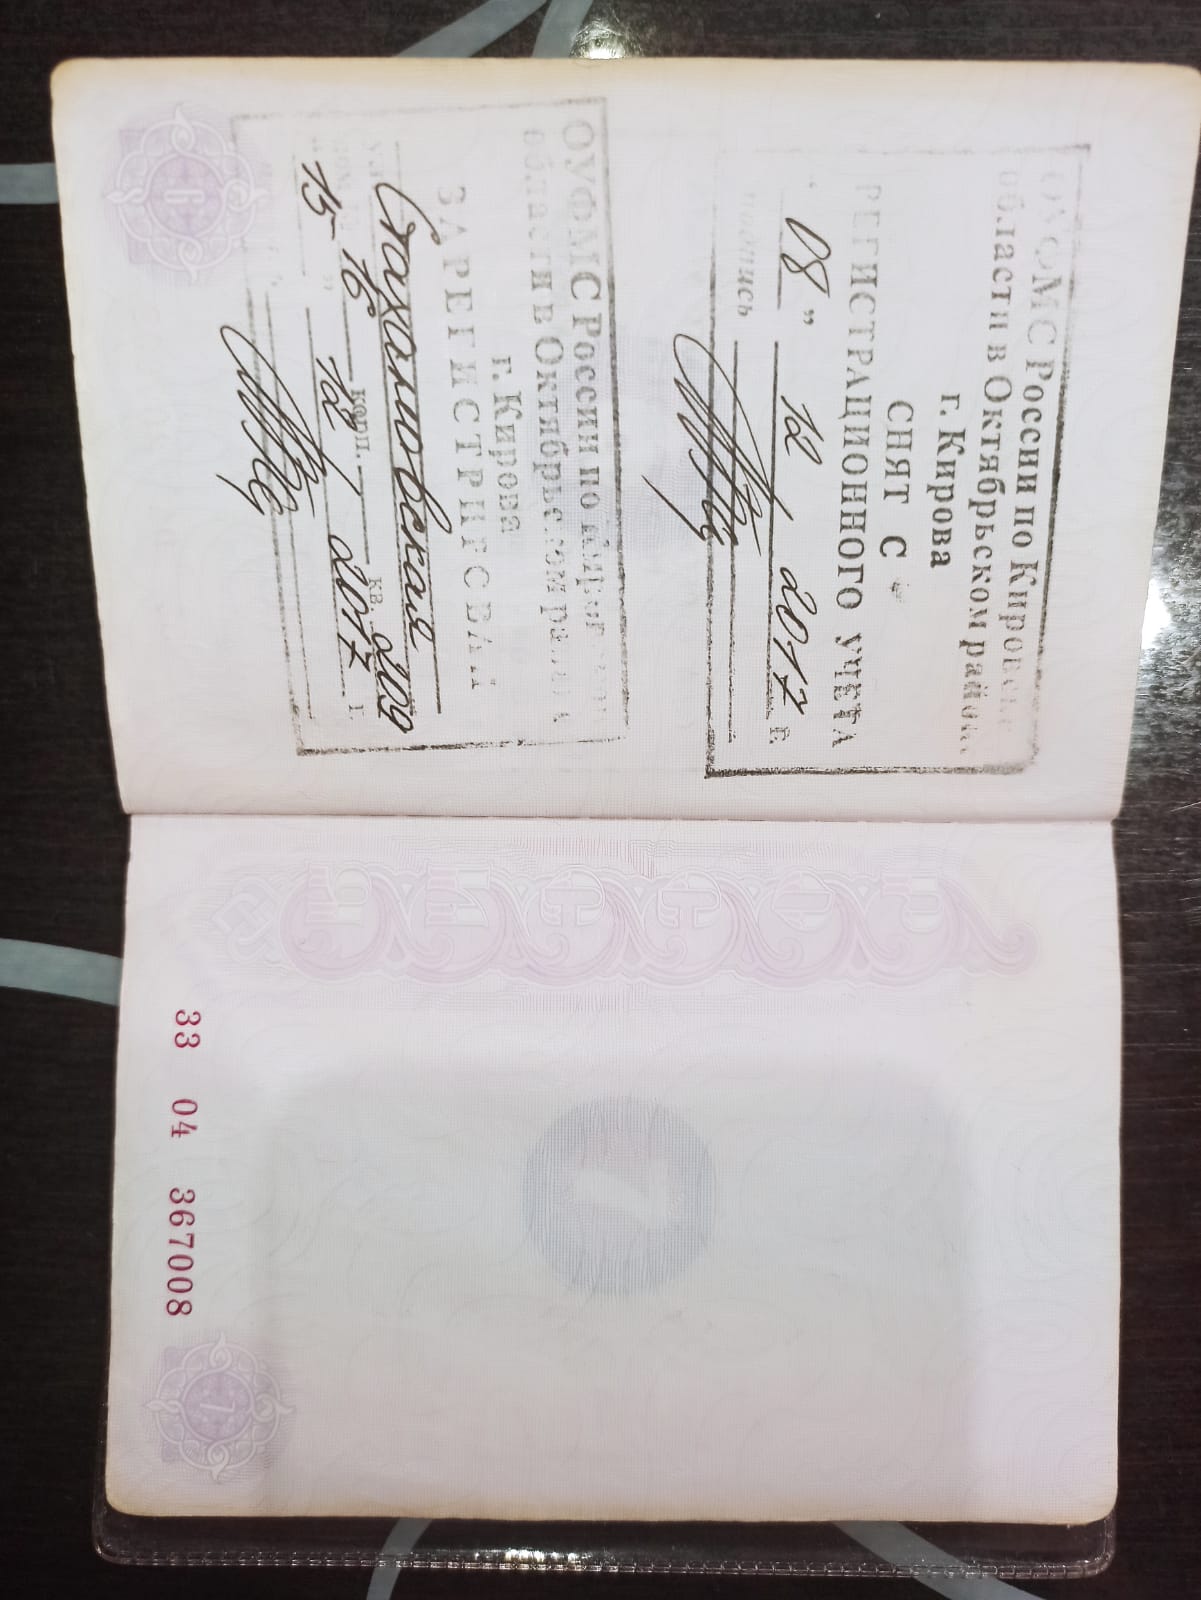 ОУФМС России по Кировской
области в Октябрьском районе
г. Кирова
СНЯТ С
РЕГИСТРАЦИОННОГО УЧЕТА
" 08 " 12 2017 г.
подпись
ОУФМС России по Кировской
области в Октябрьском района
г. Кирова
ЗАРЕГИСТРИРОВАН
Стахановская
16 корп. кв. 209
15 " 12 2017 г.
6
33 04 367008
7
7